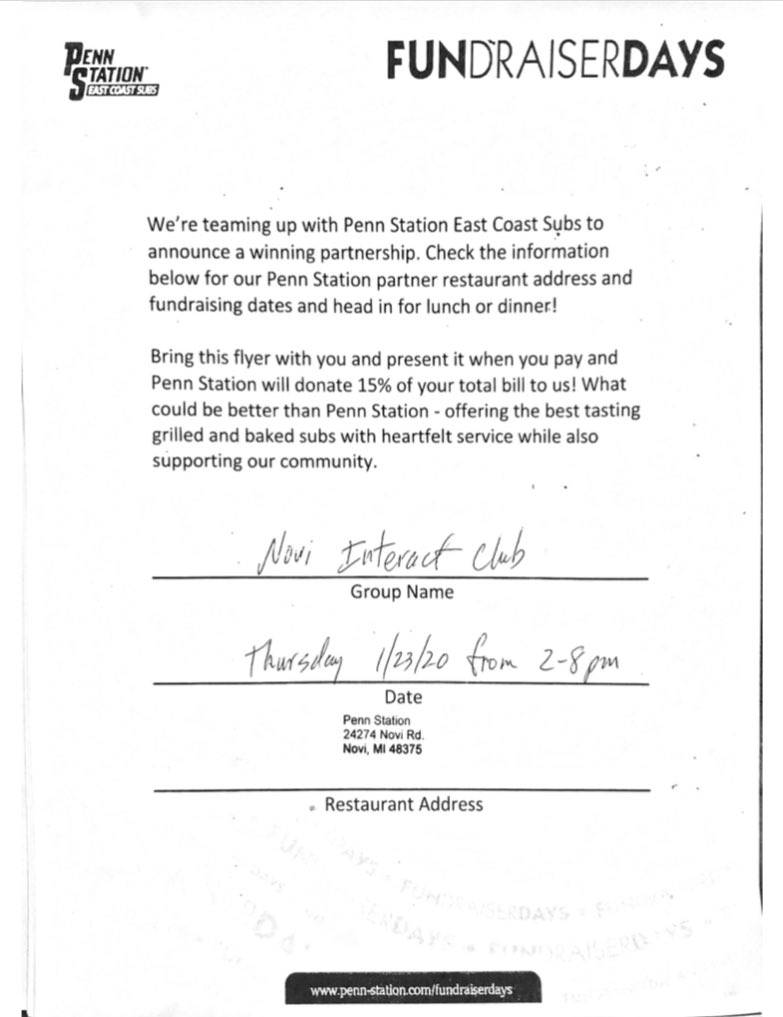 PENN
STATION
EAST COAST SUBS
FUNDRAISERDAYS
We're teaming up with Penn Station East Coast Subs to
announce a winning partnership. Check the information
below for our Penn Station partner restaurant address and
fundraising dates and head in for lunch or dinner!
Bring this flyer with you and present it when you pay and
Penn Station will donate 15% of your total bill to us! What
could be better than Penn Station - offering the best tasting
grilled and baked subs with heartfelt service while also
supporting our community.
Novi Interact Club
Group Name
Thursday 1/23/20 from 2-8pm
Date
Penn Station
24274 Novi Rd.
Novi, MI 48375
Restaurant Address
DAYS • FUNDRAISERDAYS •
FUNDRAISERD
www.penn-station.com/fundraiserdays